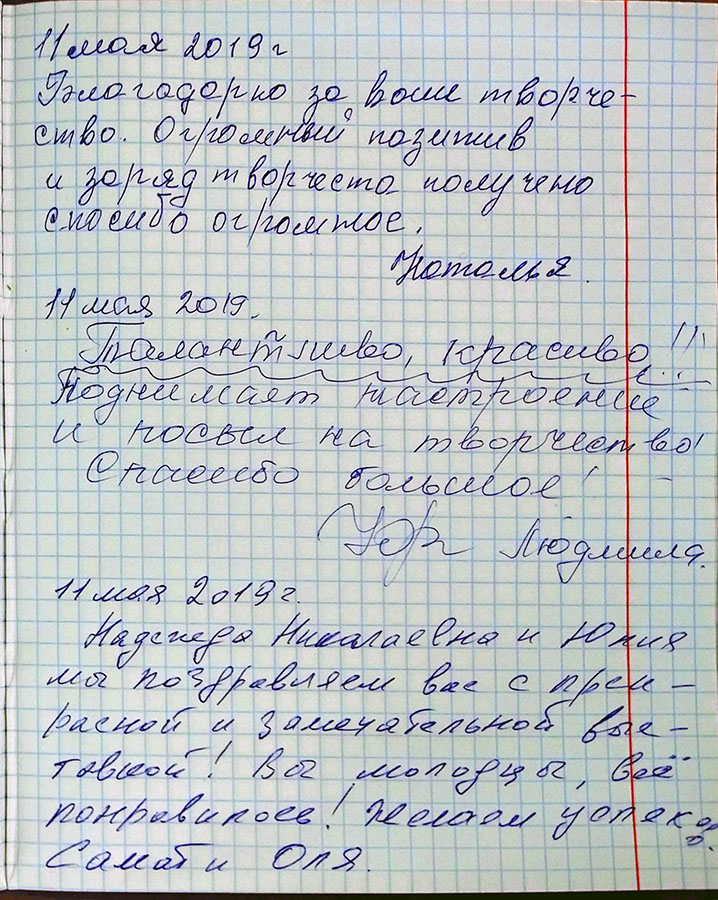 11 мая 2019 г
Благодарю за ваше творче-
ство. Огромный позитив
и заряд творчеста получено
спосибо огромное.
Наталья.
11 мая 2019.
Талантливо, красиво!!!
Поднимает настроение
и посыл на творчество!
Спасибо большое!
Людмила.
11 мая 2019 г.
Надежда Николаевна и Юлия
мы поздравляем вас с прек-
расной и замечательной выс-
тавкой! Вы молодцы, всё
понравилось! Желаем успехов.
Самат и Оля.